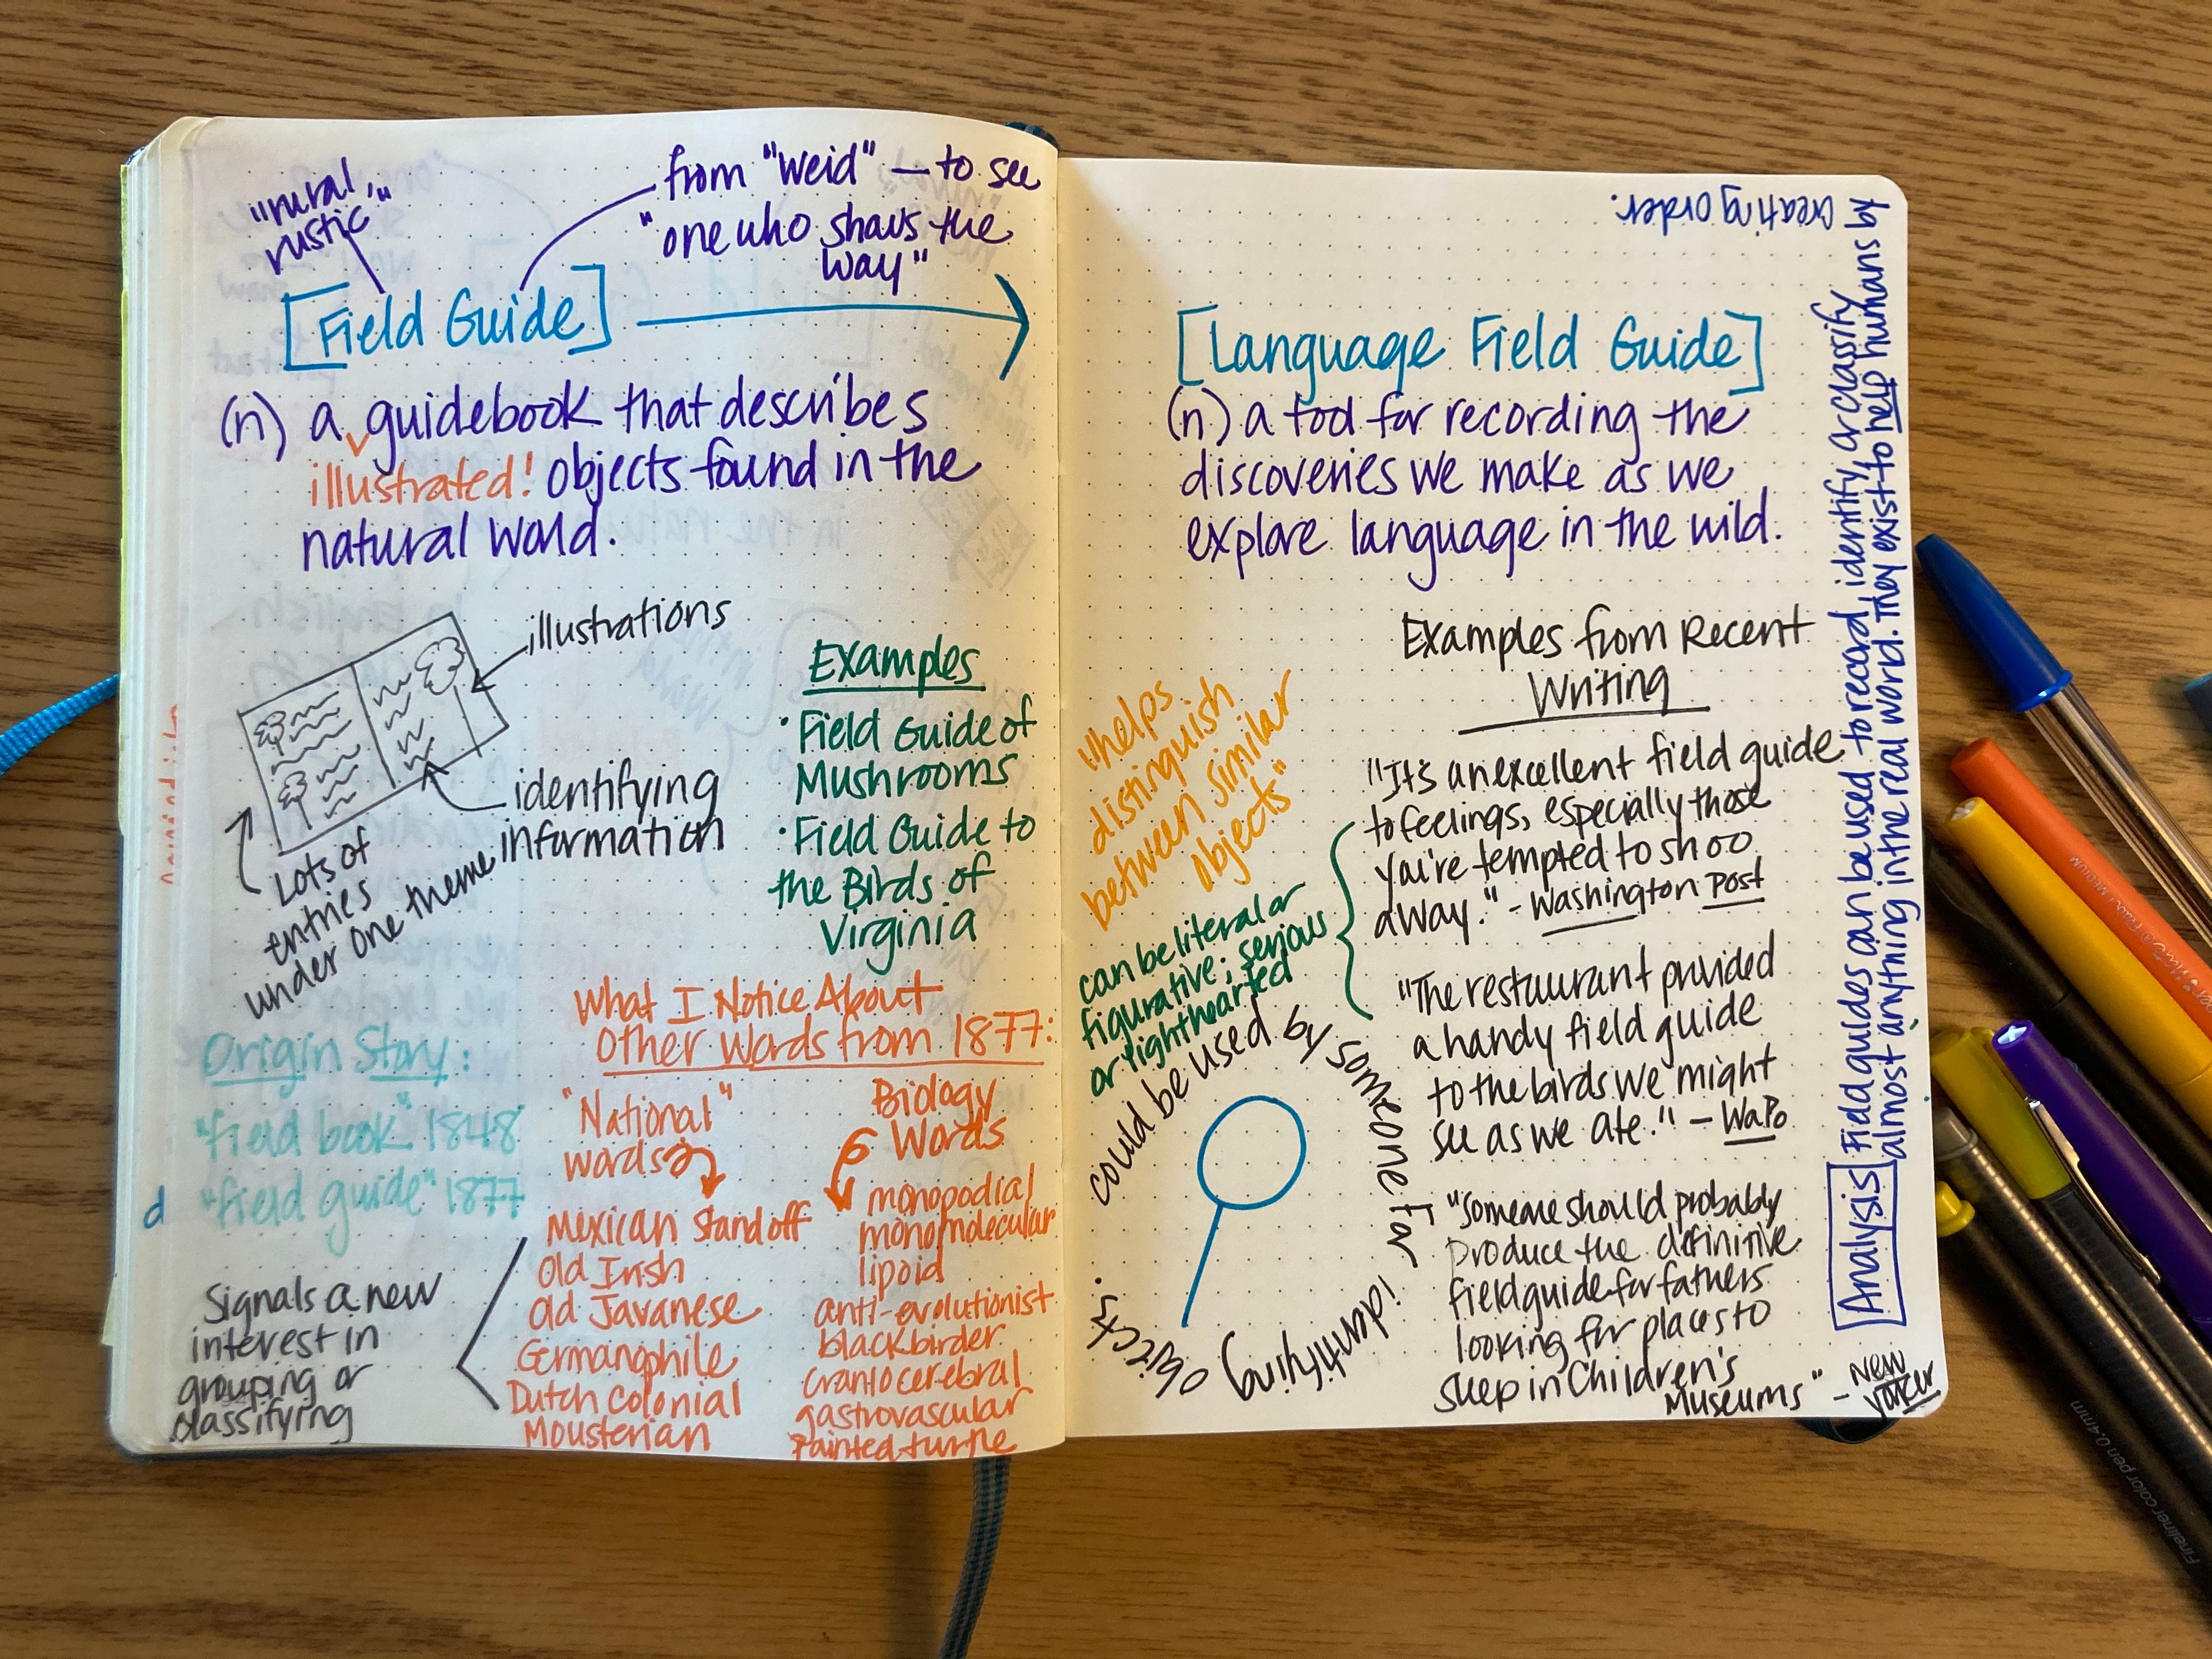 "rural,"
rustic
from "weid" — to see
"one who shows the
way"
[Field Guide]
(n) a guidebook that describes
illustrated! objects found in the
natural world.
illustrations
identifying
information
Lots of
entries
under one theme
Examples
• Field Guide of
Mushrooms
• Field Guide to
the Birds of
Virginia
Origin Story:
"field book" 1848
"field guide" 1877
Signals a new
interest in
grouping or
classifying
What I Notice About
Other Words from 1877:
"National"
words
Mexican Standoff
Old Irish
Old Javanese
Germanophile
Dutch Colonial
Mousterian
Biology
Words
monopodial
monomolecular
lipoid
anti-evolutionist
blackbirder
craniocerebral
gastrovascular
Painted turtle
d
[Language Field Guide]
(n) a tool for recording the
discoveries we make as we
explore language in the wild.
"helps
distinguish
between similar
objects"
can be literal or
figurative; serious
or lighthearted
could be used by someone for identifying objects.
Examples from Recent
Writing
"It's an excellent field guide
to feelings, especially those
you're tempted to shoo
away." - Washington Post
"The restaurant provided
a handy field guide
to the birds we might
see as we ate." - WaPo
"Someone should probably
produce the definitive
field guide for fathers
looking for places to
sleep in Children's
Museums" - New
Yorker
Analysis Field guides can be used to record, identify, or classify
almost anything in the real world. They exist to help humans by
creating order.
Fineliner color pen 0.4mm